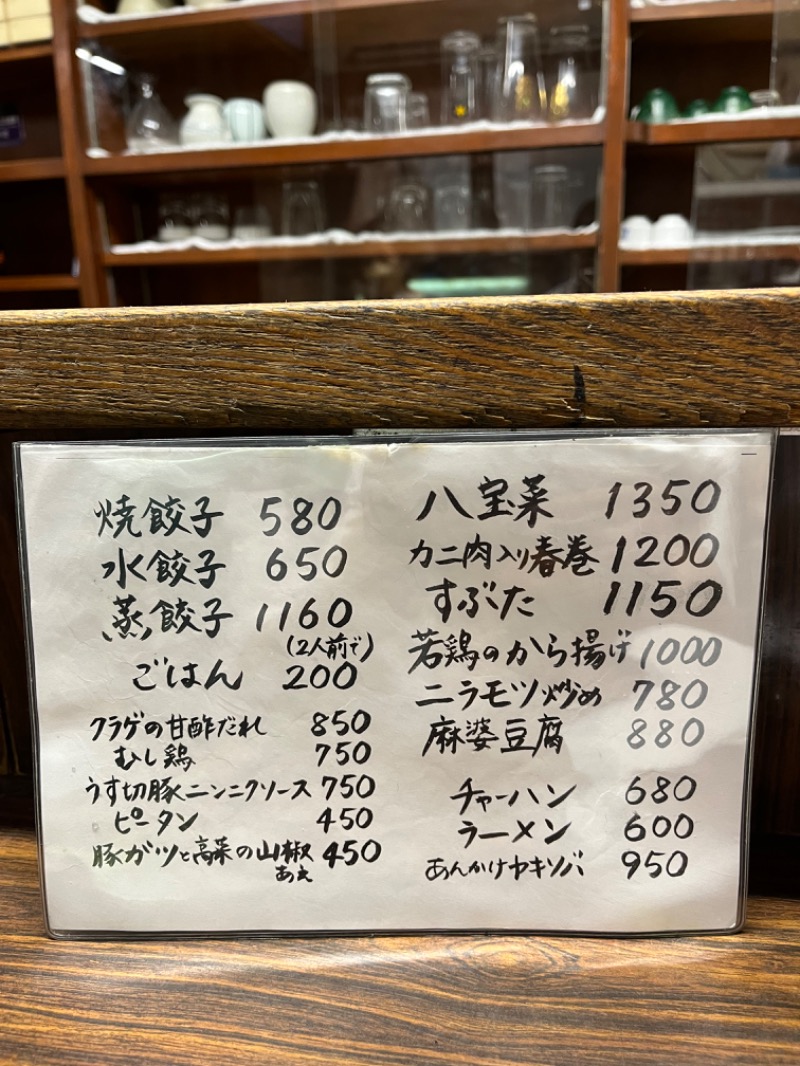 焼餃子 580
水餃子 650
蒸餃子 1160
(2人前で)
ごはん 200
クラゲの甘酢だれ 850
むし鶏 750
うす切豚ニンニクソース 750
ピータン 450
豚ガツと高菜の山椒 450
あえ
八宝菜 1350
カニ肉入り春巻 1200
すぶた 1150
若鶏のから揚げ 1000
ニラモツ炒め 780
麻婆豆腐 880
チャーハン 680
ラーメン 600
あんかけヤキソバ 950